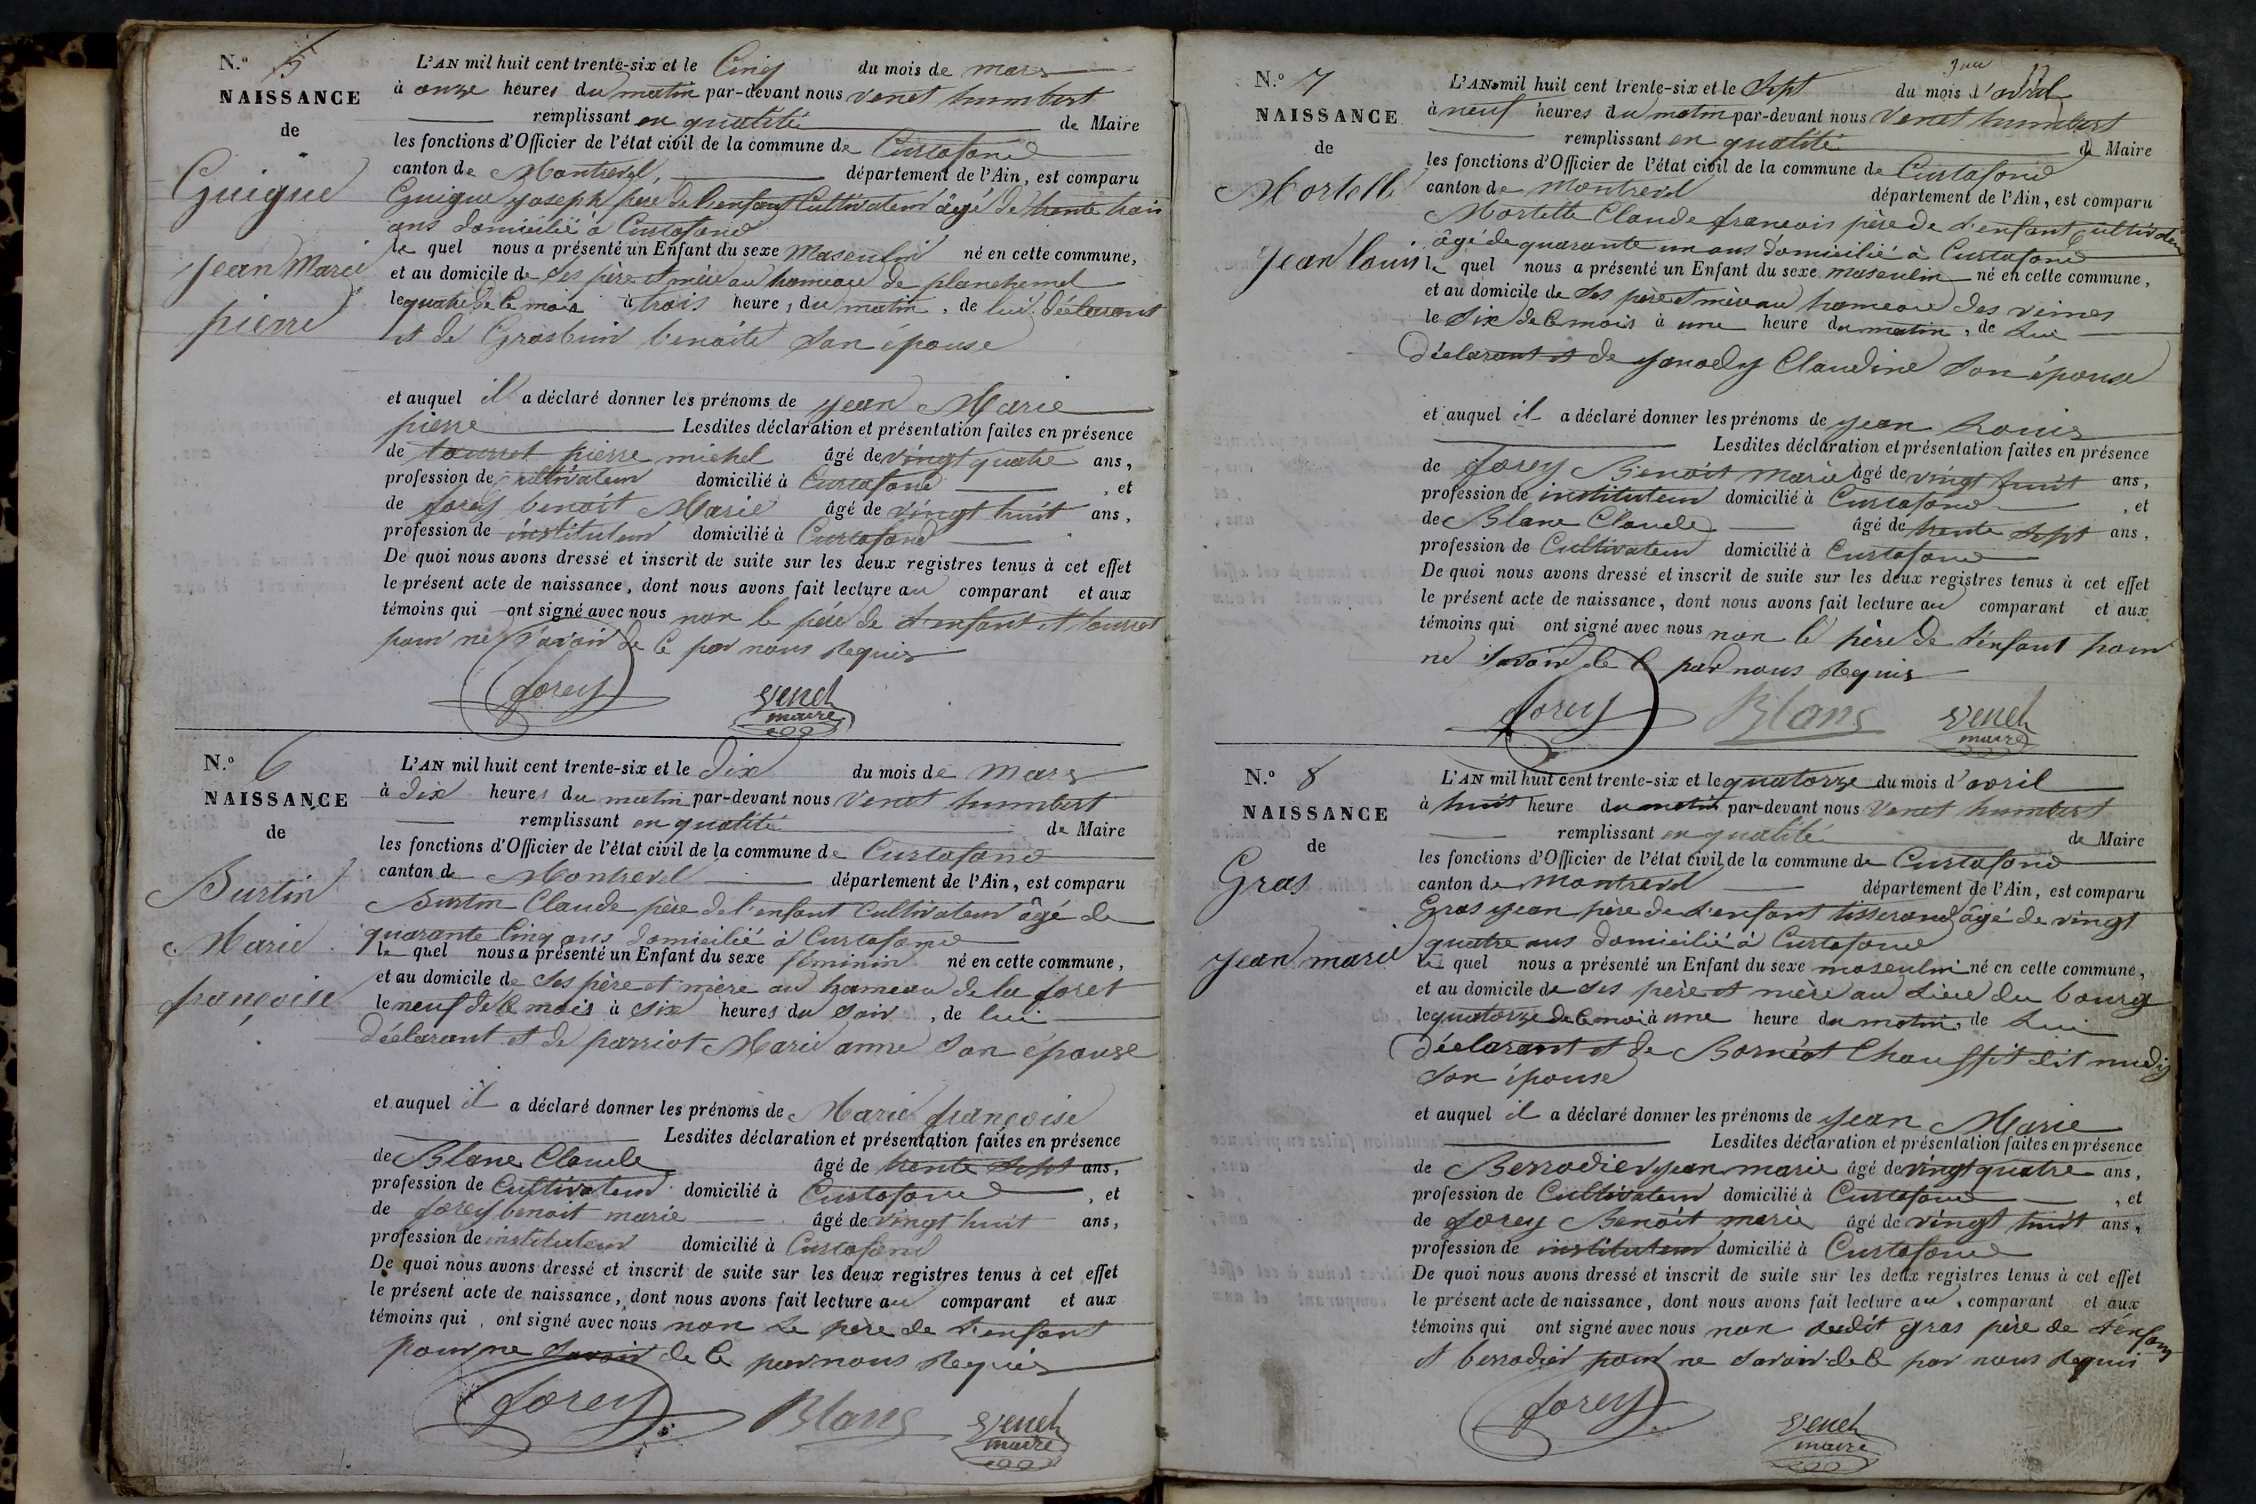 N.o 5
NAISSANCE
de
Guigue
jean Marie
pierre
L'AN mil huit cent trente-six et le Cinq du mois de mars
à onze heures du matin par-devant nous Venet humbert
remplissant en qualité de Maire
les fonctions d'Officier de l'état civil de la commune de Curtafond
canton de Montrevel, département de l'Ain, est comparu
Guigue joseph père de l'enfant Cultivateur âgé de trente trois
ans domicilié à Curtafond
le quel nous a présenté un Enfant du sexe Masculin né en cette commune,
et au domicile de ses père et mère au hameau de planchemel
le quatre de ce mois à trois heures du matin, de lui déclarant
et de benoite son épouse
et auquel il a déclaré donner les prénoms de jean Marie
pierre Lesdites déclaration et présentation faites en présence
de tourret pierre michel âgé de vingt quatre ans,
profession de cultivateur domicilié à Curtafond, et
de forey benoit Marie âgé de vingt huit ans,
profession de instituteur domicilié à Curtafond
De quoi nous avons dressé et inscrit de suite sur les deux registres tenus à cet effet
le présent acte de naissance, dont nous avons fait lecture au comparant et aux
témoins qui ont signé avec nous non le père de l'enfant et tourret
pour ne savoir de ce par nous Requis
forey Venet
maire
N.o 6
NAISSANCE
de
Burtin
Marie
françoise
L'AN mil huit cent trente-six et le dix du mois de mars
à dix heures du matin par-devant nous Venet humbert
remplissant en qualité de Maire
les fonctions d'Officier de l'état civil de la commune de Curtafond
canton de Montrevel département de l'Ain, est comparu
Burtin Claude père de l'enfant Cultivateur âgé de
quarante Cinq ans domicilié à Curtafond
le quel nous a présenté un Enfant du sexe féminin né en cette commune,
et au domicile de ses père et mère au hameau de la foret
le neuf de ce mois à six heures du soir, de lui
déclarant et de parriot Marie anne son épouse
et auquel il a déclaré donner les prénoms de Marie françoise
Lesdites déclaration et présentation faites en présence
de Blanc Claude âgé de trente sept ans,
profession de Cultivateur domicilié à Curtafond, et
de forey benoit marie âgé de vingt huit ans,
profession de instituteur domicilié à Curtafond
De quoi nous avons dressé et inscrit de suite sur les deux registres tenus à cet effet
le présent acte de naissance, dont nous avons fait lecture au comparant et aux
témoins qui ont signé avec nous non le père de l'enfant
pour ne savoir de ce par nous Requis
forey Blanc Venet
maire
N.o 7
NAISSANCE
de
Mortelle
jean louis
L'AN mil huit cent trente-six et le sept du mois d'avril
à neuf heures du matin par-devant nous Venet humbert
remplissant en qualité de Maire
les fonctions d'Officier de l'état civil de la commune de Curtafond
canton de montrevel département de l'Ain, est comparu
Mortelle Claude francois père de l'enfant cultivateur
âgé de quarante un ans domicilié à Curtafond
le quel nous a présenté un Enfant du sexe masculin né en cette commune,
et au domicile de ses père et mère au hameau des
le six de ce mois à une heure du matin, de Lui
déclarant et de Claudine son épouse
et auquel il a déclaré donner les prénoms de jean Louis
Lesdites déclaration et présentation faites en présence
de forey Benoit marie âgé de vingt huit ans,
profession de instituteur domicilié à Curtafond, et
de Blanc Claude âgé de trente sept ans,
profession de Cultivateur domicilié à Curtafond
De quoi nous avons dressé et inscrit de suite sur les deux registres tenus à cet effet
le présent acte de naissance, dont nous avons fait lecture au comparant et aux
témoins qui ont signé avec nous non le père de l'enfant pour
ne savoir de ce par nous Requis
forey Blanc Venet
maire
N.o 8
NAISSANCE
de
Gras
jean marie
L'AN mil huit cent trente-six et le quatorze du mois d'avril
à huit heure du matin par-devant nous Venet humbert
remplissant en qualité de Maire
les fonctions d'Officier de l'état civil de la commune de Curtafond
canton de montrevel département de l'Ain, est comparu
Gras jean père de l'enfant tisserand âgé de vingt
quatre ans domicilié à Curtafond
le quel nous a présenté un Enfant du sexe masculin né en cette commune,
et au domicile de ses père et mère au Lieu du bourg
le quatorze de ce moi à une heure du matin, de Lui
déclarant et de dit
son épouse
et auquel il a déclaré donner les prénoms de jean Marie
Lesdites déclaration et présentation faites en présence
de Berrodier jean marie âgé de vingt quatre ans,
profession de Cultivateur domicilié à Curtafond, et
de forey Benoit marie âgé de vingt huit ans,
profession de instituteur domicilié à Curtafond
De quoi nous avons dressé et inscrit de suite sur les deux registres tenus à cet effet
le présent acte de naissance, dont nous avons fait lecture au comparant et aux
témoins qui ont signé avec nous non Ledit gras père de l'enfant
et berrodier pour ne savoir de ce par nous Requis
forey Venet
maire